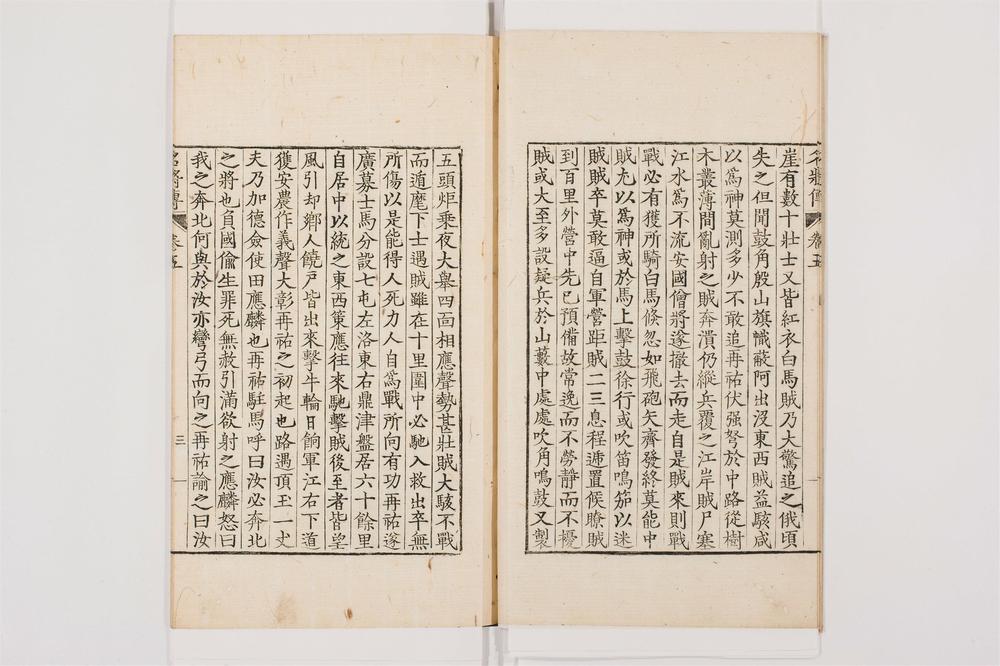 名將傳 卷五
崖有數十壯士又皆紅衣白馬賊乃大驚追之俄頃
失之但聞鼓角殷山旗幟蔽阿出沒東西賊益駭咸
以爲神莫測多少不敢追再祐伏强弩於中路從樹
木叢薄間亂射之賊奔潰仍縱兵覆之江岸賊尸塞
江水爲不流安國僧將遂撤去而走自是賊來則戰
戰必有獲所騎白馬倏忽如飛砲矢齊發終莫能中
賊尤以爲神或於馬上擊鼓徐行或吹笛鳴笳以迷
賊賊卒莫敢逼自軍營距賊二三息程逓置候瞭賊
到百里外營中先已預備故常逸而不勞靜而不擾
賊或大至多設疑兵於山藪中處處吹角鳴鼓又製
五頭炬乘夜大舉四面相應聲勢甚壯賊大駭不戰
而遁麾下士遇賊雖在十里圍中必馳入救出卒無
所傷以是能得人死力人自爲戰所向有功再祐遂
廣募士馬分設七屯左洛東右鼎津盤居六十餘里
自居中以統之東西策應往來馳擊賊後至者皆望
風引却鄕人饒戶皆出來擊牛輸日餉軍江右下道
獲安農作義聲大彰再祐之初起也路遇頂玉一丈
夫乃加德僉使田應麟也再祐駐馬呼曰汝必奔北
之將也負國偸生罪死無赦引滿欲射之應麟怒曰
我之奔北何與於汝亦彎弓而向之再祐諭之曰汝
名將傳 卷五 三